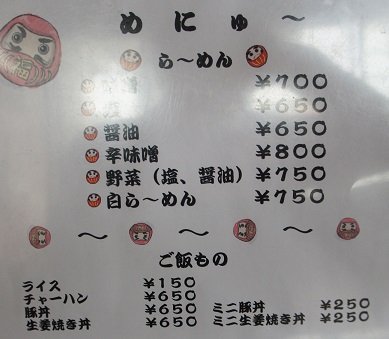 めにゅ～
ら～めん
味噌 ￥700
塩 ￥650
醤油 ￥650
辛味噌 ￥800
野菜（塩、醤油） ￥750
白ら～めん ￥750
～ ～ ～
ご飯もの
ライス ￥150
チャーハン ￥650
豚丼 ￥650 ミニ豚丼 ￥250
生姜焼き丼 ￥650 ミニ生姜焼き丼 ￥250